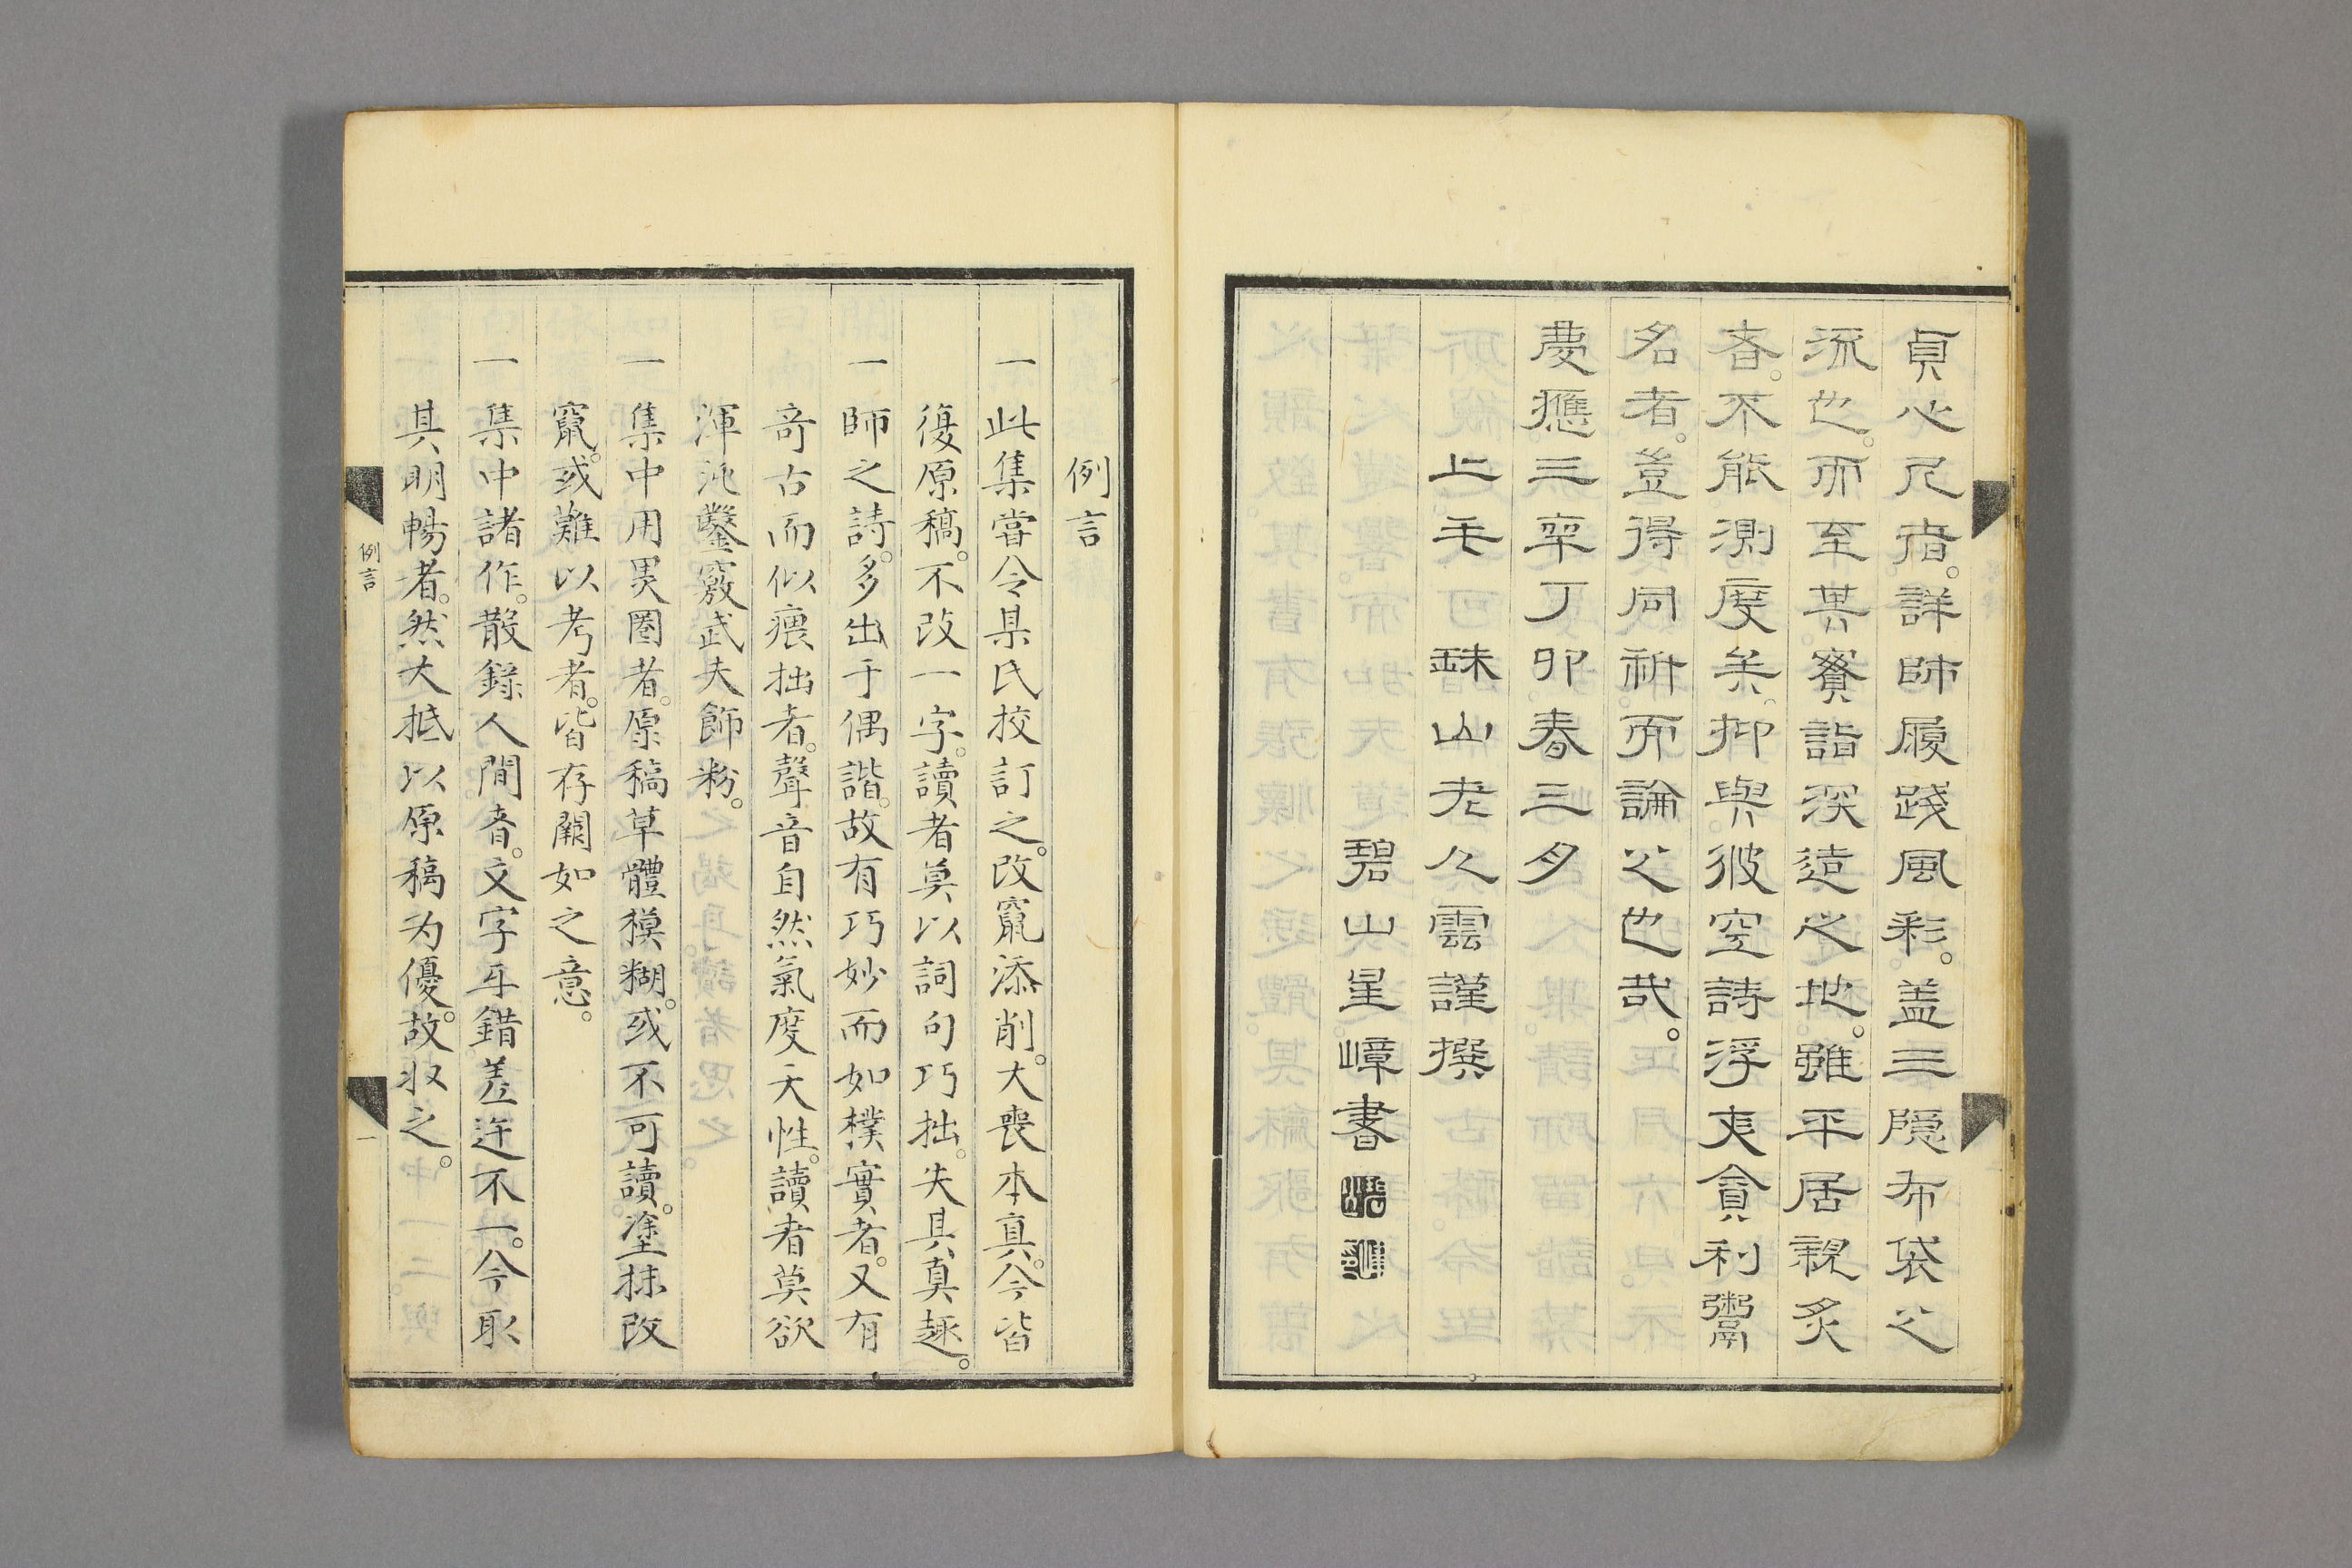 貞心尼者。詳師履踐風彩。盖三隱布袋之
流也。而至其賽詣深遠之地。雖平居親炙
者。不能測度矣。抑與彼空詩浮夷貪利鬻
名者。豈得同術而論之也哉。
慶應三年丁卯春三月
上毛 銇山老人雲謹撰
碧山星嶂書
例言
一此集嘗令某氏挍訂之。改竄添削。大喪本真。今皆
復原稿。不改一字。讀者莫以詞句巧拙。失其真趣。
一師之詩。多出于偶諧。故有巧妙而如樸實者。又有
奇古而似痕拙者。聲音自然氣度天性。讀者莫欲
渾沌鑿竅武夫飾粉。
一集中用黑圈者。原稿草體模糊。或不可讀。塗抹改
竄。或難以考者。皆存闕如之意。
一集中諸作。散錄人間者。文字互錯差迕不一。今取
其明暢者。然大抵以原稿为優。故收之。
例言
一